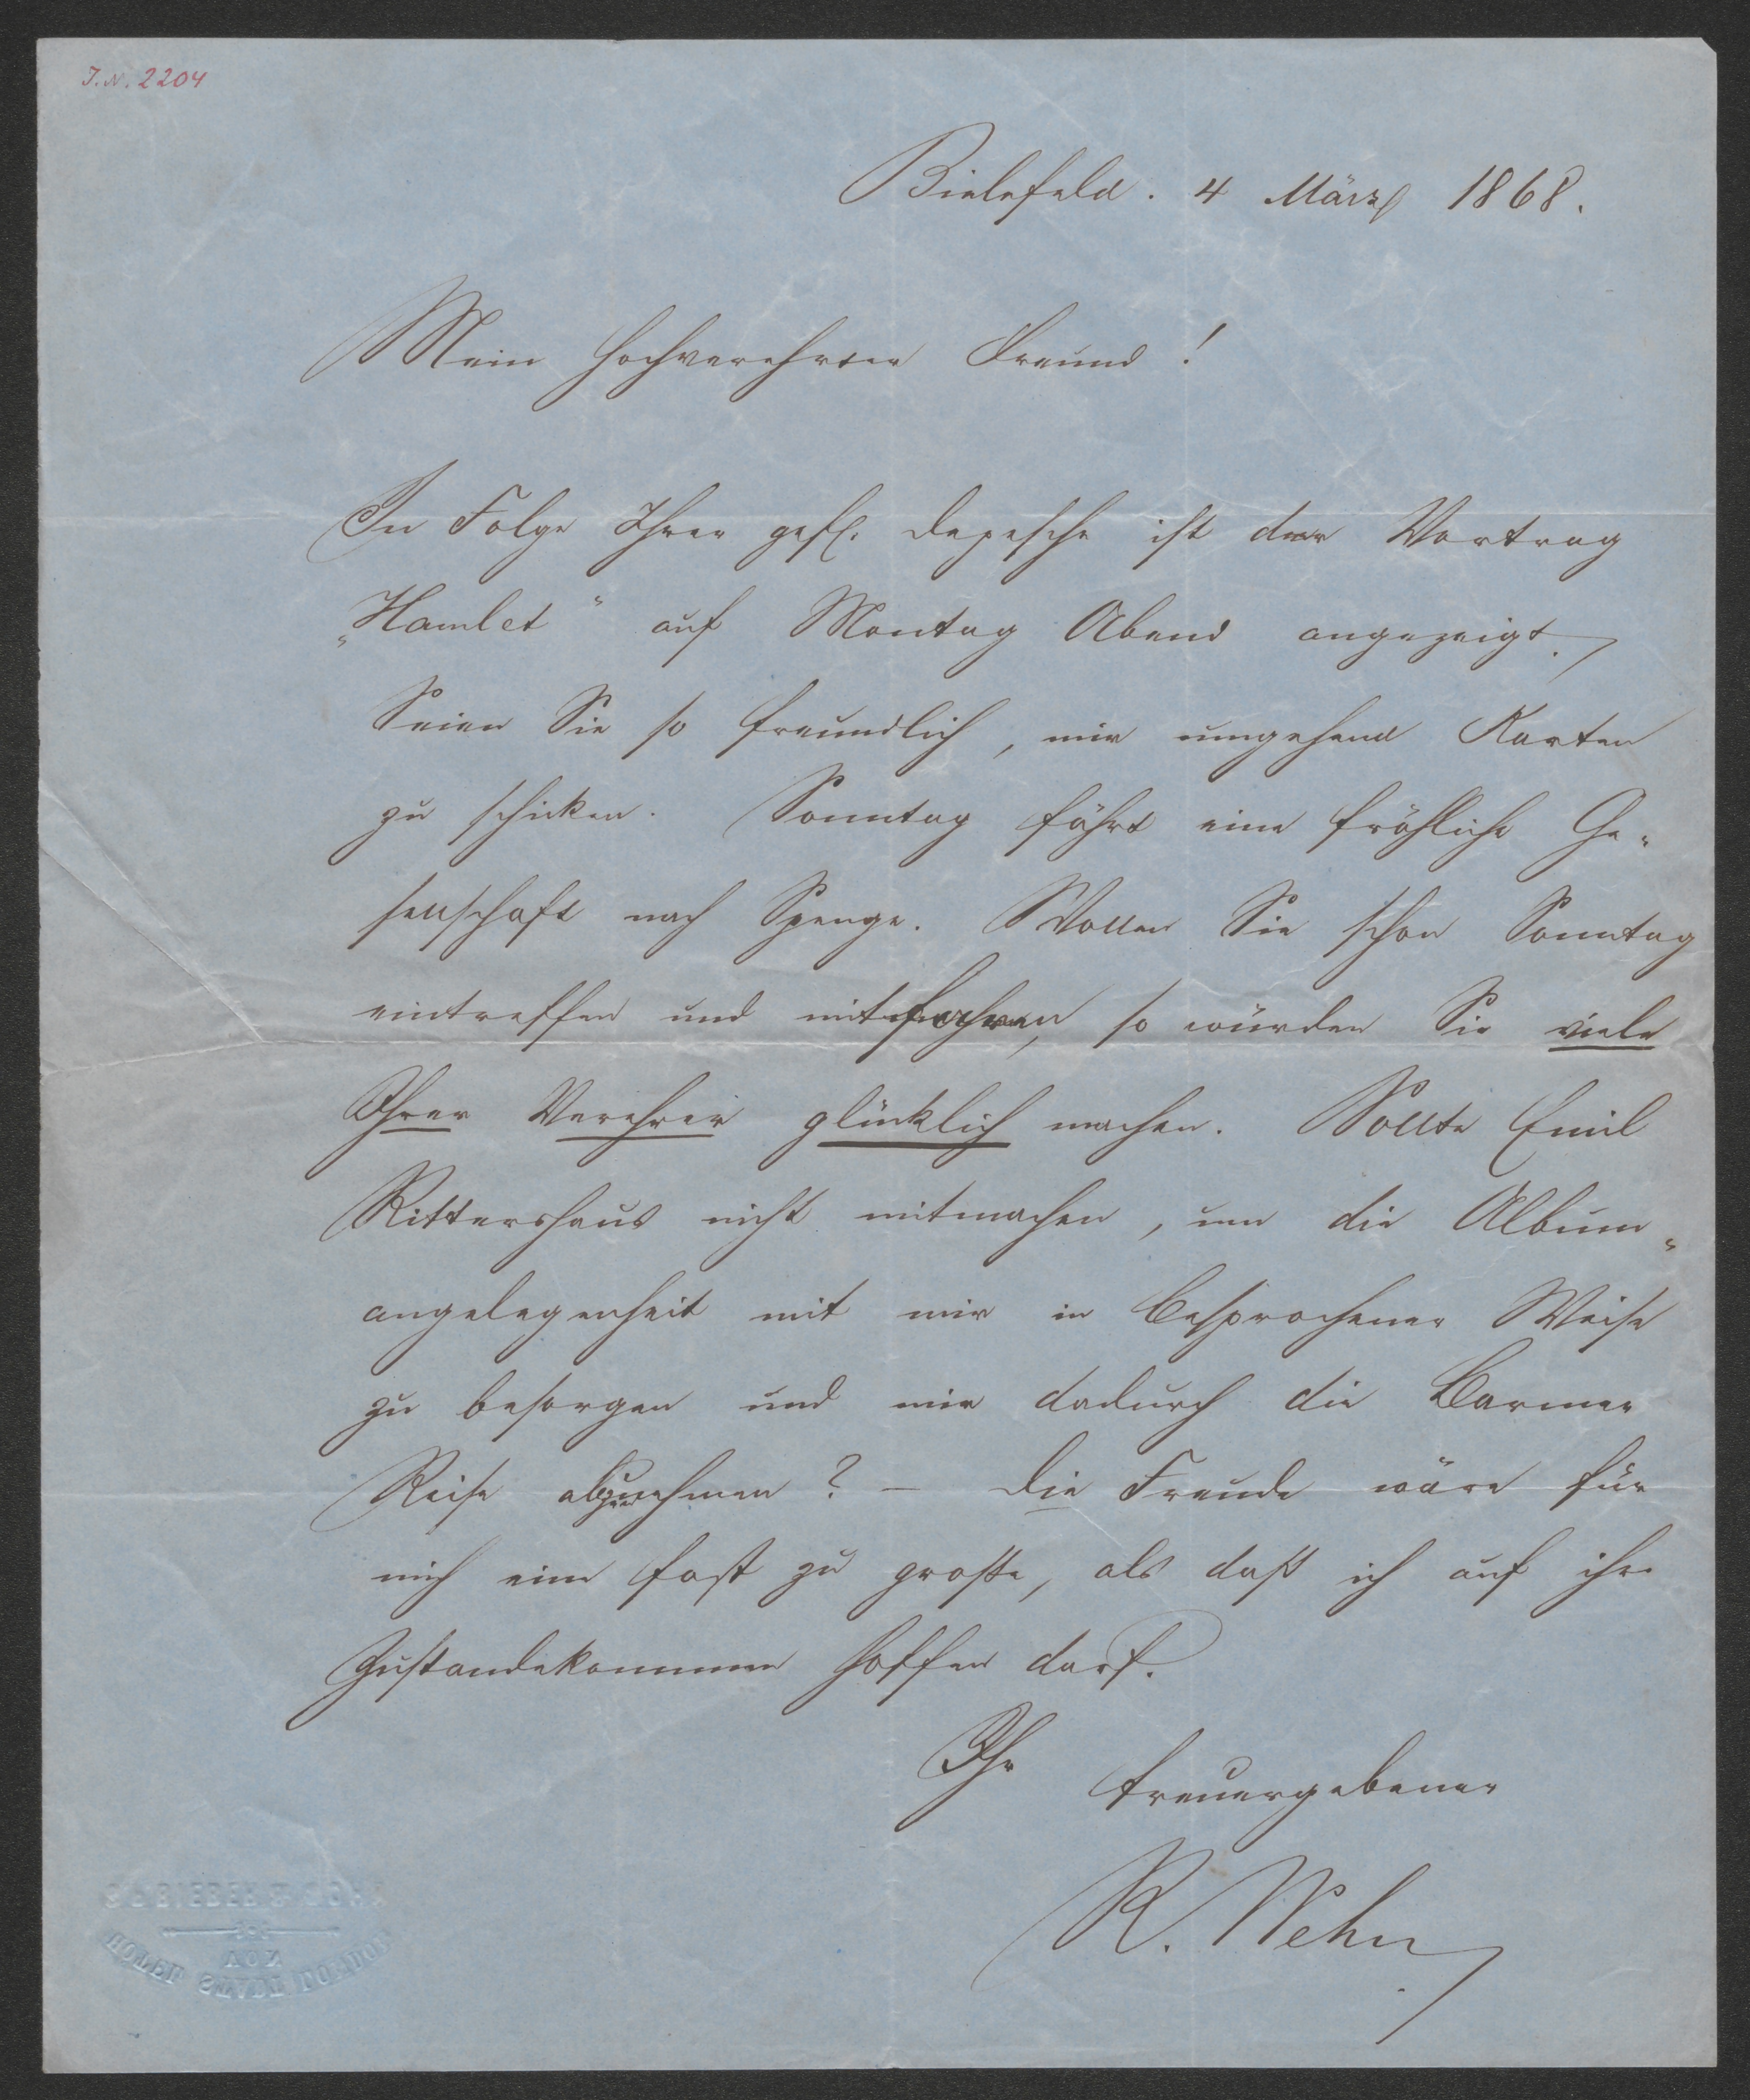 J. N. 2204
Bielefeld. 4 März 1868.
Mein hochverehrter Freund!
In Folge Ihrer gefl. Depesche ist der Vortrag
„Hamlet“ auf Montag Abend angezeigt.
Seien Sie so freundlich, mir umgehend Karten
zu schicken. Sonntag fährt eine fröhliche Ge-
sellschaft nach Spenge. Wollen Sie schon Sonntag
eintreffen und mitfahren, so würden Sie viele
Ihrer Verehrer glücklich machen. Sollte Emil
Rittershaus nicht mitmachen, um die Album-
angelegenheit mit mir in besprochener Weise
zu besorgen und mir dadurch die Barmer
Reise abzunehmen? — Die Freude wäre für
mich eine fast zu große, als daß ich auf ihr
Zustandekommen hoffen darf.
Ihr treuergebener
R. Wehn
HOTEL STADT LONDON